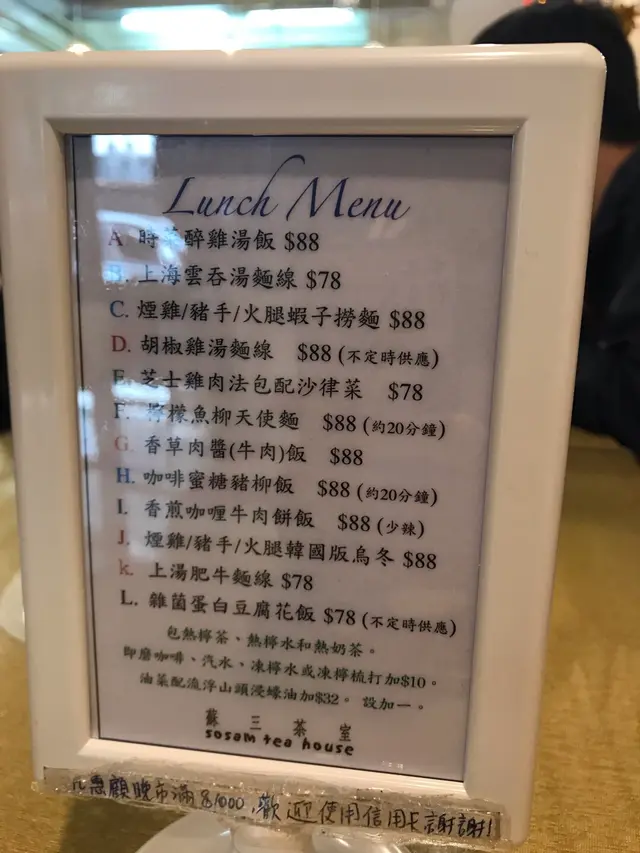 Lunch Menu
A. 時菜醉雞湯飯 $88
B. 上海雲吞湯麵線 $78
C. 煙雞/豬手/火腿蝦子撈麵 $88
D. 胡椒雞湯麵線 $88 (不定時供應)
E. 芝士雞肉法包配沙律菜 $78
F. 檸檬魚柳天使麵 $88 (約20分鐘)
G. 香草肉醬(牛肉)飯 $88
H. 咖啡蜜糖豬柳飯 $88 (約20分鐘)
I. 香煎咖喱牛肉餅飯 $88 (少辣)
J. 煙雞/豬手/火腿韓國版烏冬 $88
k. 上湯肥牛麵線 $78
L. 雜菌蛋白豆腐花飯 $78 (不定時供應)
包熱檸茶、熱檸水和熱奶茶。
即磨咖啡、汽水、凍檸水或凍檸梳打加$10。
油菜配流浮山頭浸蠔油加$32。 設加一。
蘇三茶室
sosam tea house
凡惠顧晚市滿$1000,歡迎使用信用卡謝謝!